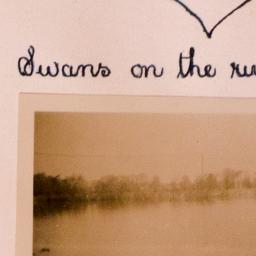 Swans on the